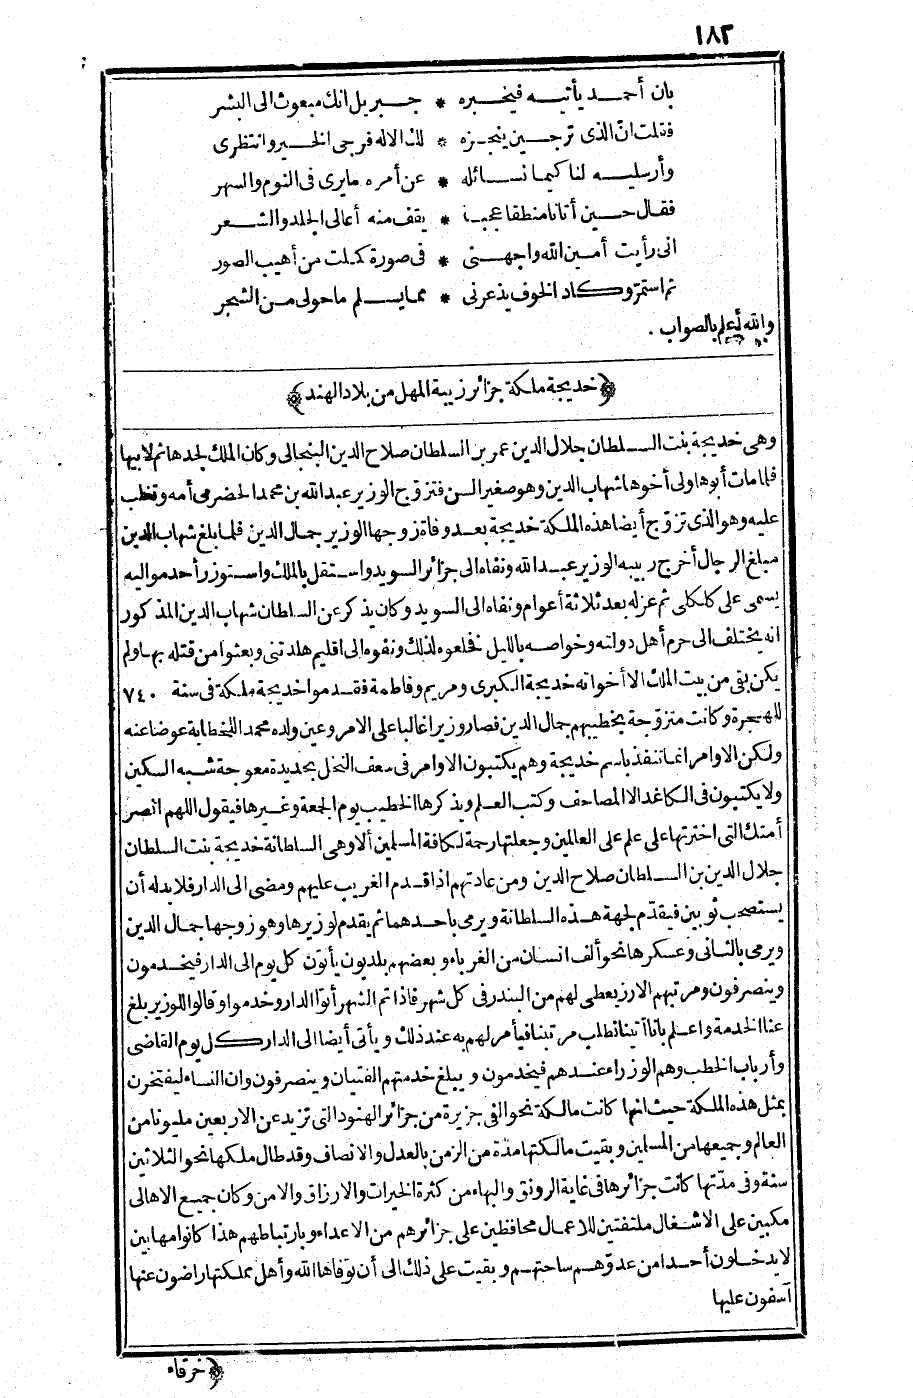 ١٨٢
بان أحمد يأتيه فيخبره * جبريل انك مبعوث الى البشر
فقلت انّ الذى ترجين ينجزه * لك الاله فرجى الخير وانتظرى
وأرسليه لنا كيما نسائله * عن أمره ما يرى فى النوم والسهر
فقال حين أتانا منطقا عجبا * يقف منه أعالى الجلد والشعر
انى رأيت أمين الله واجهنى * فى صورة كملت من أهيب الصور
ثم استمرّ وكاد الخوف يذعرنى * مما يسلم ما حولى من الشجر
والله أعلم بالصواب .
﴿خديجة ملكة جزائر زيبة المهل من بلاد الهند﴾
وهى خديجة بنت السلطان جلال الدين عمر بن السلطان صلاح الدين البنجالى وكان الملك لجدها ثم لابيها
فلما مات أبوها ولى أخوها شهاب الدين وهو صغير السن فتزوّج الوزير عبد الله بن محمد الحضرمى أمه وتغلب
عليه وهو الذى تزوّج أيضا هذه الملكة خديجة بعد وفاة زوجها الوزير جمال الدين فلما بلغ شهاب الدين
مبلغ الرجال أخرج ربيبه الوزير عبد الله ونفاه الى جزائر السويد واستقل بالملك واستوزر أحد مواليه
يسمى على كلكلى ثم عزله بعد ثلاثة أعوام ونفاه الى السويد وكان يذكر عن السلطان شهاب الدين المذكور
انه يختلف الى حرم أهل دولته وخواصه بالليل فخلعوه لذلك ونفوه الى اقليم هلدتنى وبعثوا من قتله بها ولم
يكن بقى من بيت الملك الا أخواته خديجة الكبرى ومريم وفاطمة فقدموا خديجة ملكة فى سنة ٧٤٠
للهجرة وكانت متزوّجة بخطيبهم جمال الدين فصار وزيرا غالبا على الامر وعين ولده محمد اللخطابة عوضا عنه
ولكن الاوامر انما تنفذ باسم خديجة وهم يكتبون الاوامر فى سعف النخل بحديدة معوجة شبه السكين
ولا يكتبون فى الكاغد الا المصاحف وكتب العلم ويذكرها الخطيب يوم الجمعة وغيرها فيقول اللهم انصر
أمتك التى اخترتها على علم على العالمين وجعلتها رحمة لكافة المسلمين ألا وهى السلطانة خديجة بنت السلطان
جلال الدين بن السلطان صلاح الدين ومن عادتهم اذا قدم الغريب عليهم ومضى الى الدار فلا بد له أن
يستصحب ثوبين فيقدّم لجهة هذه السلطانة ويرمى باحدهما ثم يقدم لوزيرها وهو زوجها جمال الدين
ويرمى بالثانى وعسكرها نحو ألف انسان من الغرباء وبعضهم بلديون يأتون كل يوم الى الدار فيخدمون
وينصرفون ومرتبهم الارز يعطى لهم من البندر فى كل شهر فاذا تم الشهر أتوا الدار وخدموا وقالوا للوزير بلغ
عنا الخدمة واعلم باننا أتينا نطلب مرتبنا فيأمر لهم به عند ذلك ويأتى أيضا الى الدار كل يوم القاضى
وأرباب الخطب وهم الوزراء عندهم فيخدمون ويبلغ خدمتهم الفتيان وينصرفون وان النساء ليفتخرن
بمثل هذه الملكة حيث انها كانت مالكة نحو الفى جزيرة من جزائر الهنود التى تزيد عن الاربعين مليونا من
العالم وجميعها من المسلمين وبقيت مالكتها مدة من الزمن بالعدل والانصاف وقد طال ملكها نحو الثلاثين
سنة وفى مدّتها كانت جزائرها فى غاية الرونق والبهاء من كثرة الخيرات والارزاق والامن وكان جميع الاهالى
مكبين على الاشغال ملتفتين للاعمال محافظين على جزائرهم من الاعداء وبارتباطهم هذا كانوا مهابين
لا يدخلون أحدا من عدوّهم ساحتهم وبقيت على ذلك الى أن توفاها الله وأهل مملكتها راضون عنها
آسفون عليها
﴿خرقاء